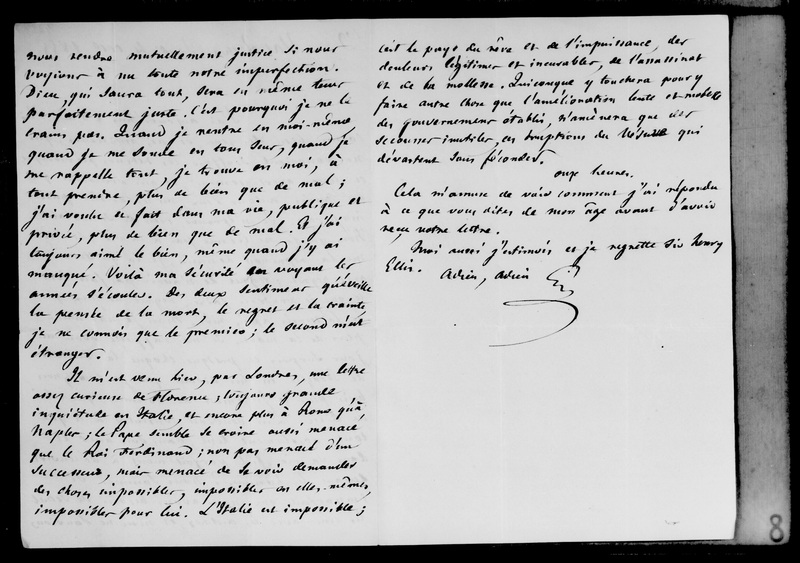 nous rendre mutuellement justice si nous
voyions à nu toute notre imperfection.
Dieu, qui saura tout, sera en même temps
parfaitement juste. C'est pourquoi je ne le
crains pas. Quand je rentre en moi-même,
quand je me sonde en tous sens, quand je
me rappelle tout, je trouve en moi, à
tout prendre, plus de bien que de mal;
j'ai voulu et fait dans ma vie, publique et
privée, plus de bien que de mal. Et j'ai
toujours aimé le bien, même quand j'y ai
manqué. Voilà ma sécurité en voyant les
années s'écouler. Des deux sentimens qu'éveille
la pensée de la mort, le regret et la crainte,
je ne connois que le premier; le second m'est
étranger.
Il m'est venu hier, par Londres, une lettre
assez curieuse de Florence; toujours grande
inquiétude en Italie, et encore plus à Rome qu'à
Naples; le Pape semble se croire aussi menacé
que le Roi Ferdinand; non pas menacé d'un
successeur, mais menacé de se voir demander
des choses impossibles, impossibles en elles-mêmes,
impossibles pour lui. L'Italie est impossible;
c'est le pays du rêve et de l'impuissance, des
douleurs légitimes et incurables, de l'assassinat
et de la mollesse. Quiconque y touchera pour y
faire autre chose que l'amélioration lente et modeste
des gouvernemens établis, n'amènera que des
secousses inutiles, en éruptions du Vésuve qui
dévastent sans féconder.
onze heures.
Cela m'amuse de voir comment j'ai répondu
à ce que vous dites de mon âge avant d'avoir
reçu votre lettre.
Moi aussi j'estimois et je regrette Sir Henry
Ellis.
Adieu, adieu
8